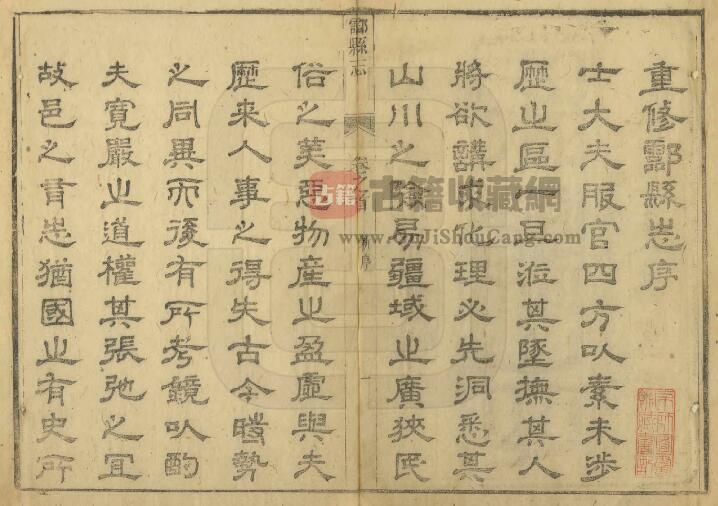 重修酃縣志序
士大夫服官四方以素未涉
歷之區一旦涖其墬撫其人
將欲講求化理必先洞悉其
山川之險易疆域之廣狹民
酃縣志
卷之首
序
一
俗之美惡物產之盈虛與夫
歷来人事之得失古今時勢
之同異而後有所考鏡以酌
夫寬嚴之道權其張弛之宜
故邑之有志猶國之有史所
古籍
古籍收藏網
www.GuJiShouCang.com